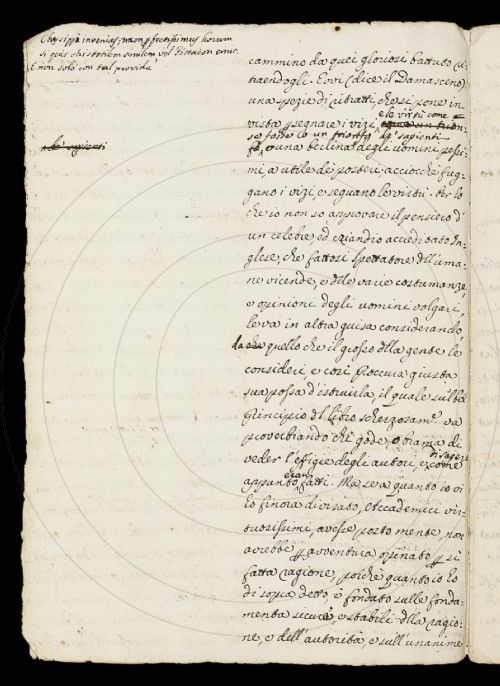 Chrysippi invenies, nam perfectissimus horum
si quis Aristotilem similem vel Pittacon emit.
E non solo con tal
cammino da quei gloriosi battuto ri-
traendogli. Evvi (dice il Damasceno)
una spezie di ritratti, che si pone in
vista per segnare i vizi, e le virtù come
se fosse io un trionfo de' sapienti
o una berlina degli uomini pessi-
mi, a utile de' posteri, acciocchè fug-
gano i vizj, e seguano le virtù. Per lo
che io non so approvare il pensiero d'
un celebre, ed eziandio accreditato In-
glese, che fattosi spettatore dell'uma-
ne vicende, e delle varie costumanze,
e opinioni degli uomini volgari,
le va in altra guisa considerando,
da quello che il grosso della gente le
consideri, e così proccura giusta
sua possa d'istruirla, il quale sul bel
principio del libro scherzosam.e va
proverbiando chi gode, o brama di
veder l'effigie degli autori, e di sapere
come appunto erano fatti. Ma se a quanto io vi
ho finora divisato, Accademici vir-
tuosissimi, avesse posto mente, non
avrebbe per avventura opinato per sì
fatta ragione, poichè quanto io ho
di sopra detto, è fondato sulle fonda-
menta sicure, e stabili della ragio-
ne, e dell'autorità, e sull'unanime